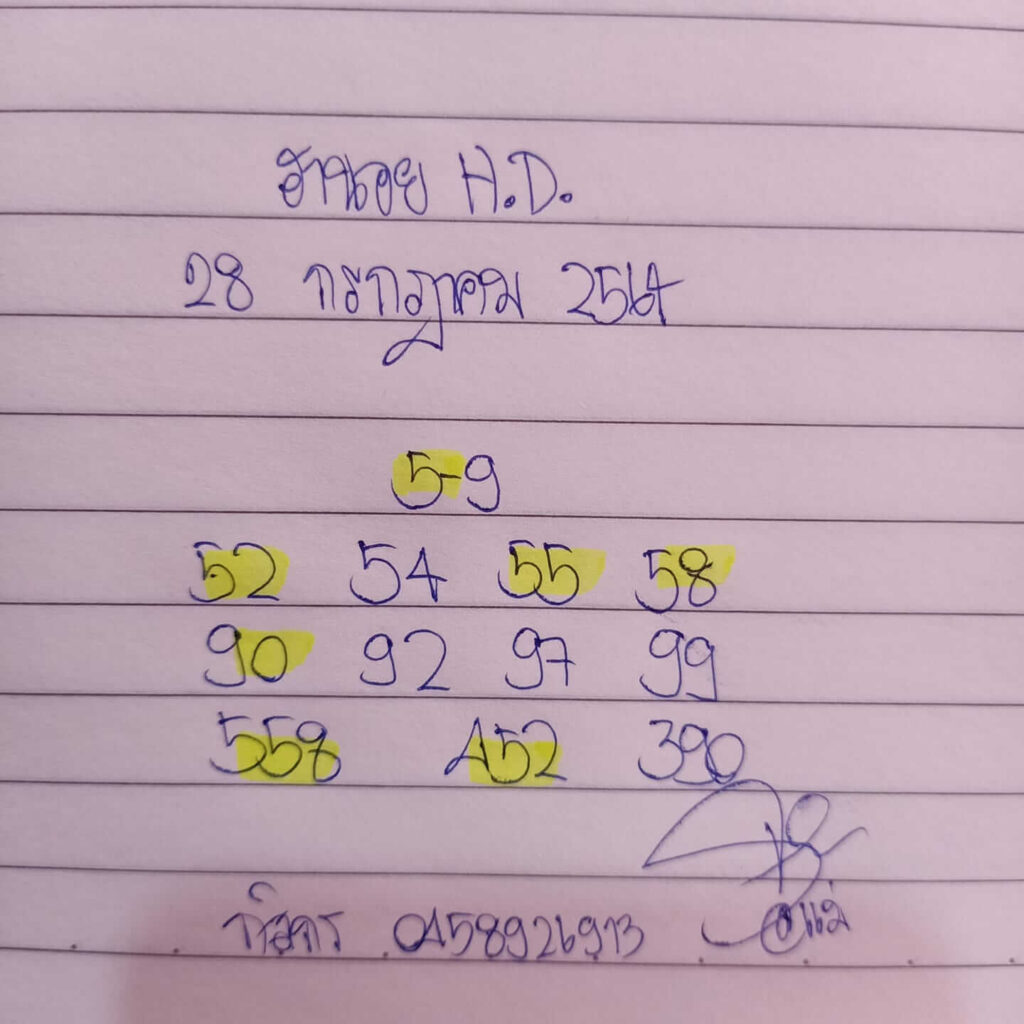 ฮานอย H.D.
28 กรกฎาคม 2564
5-9
52 54 55 58
90 92 97 99
558 452 390
0458926913 @แม่